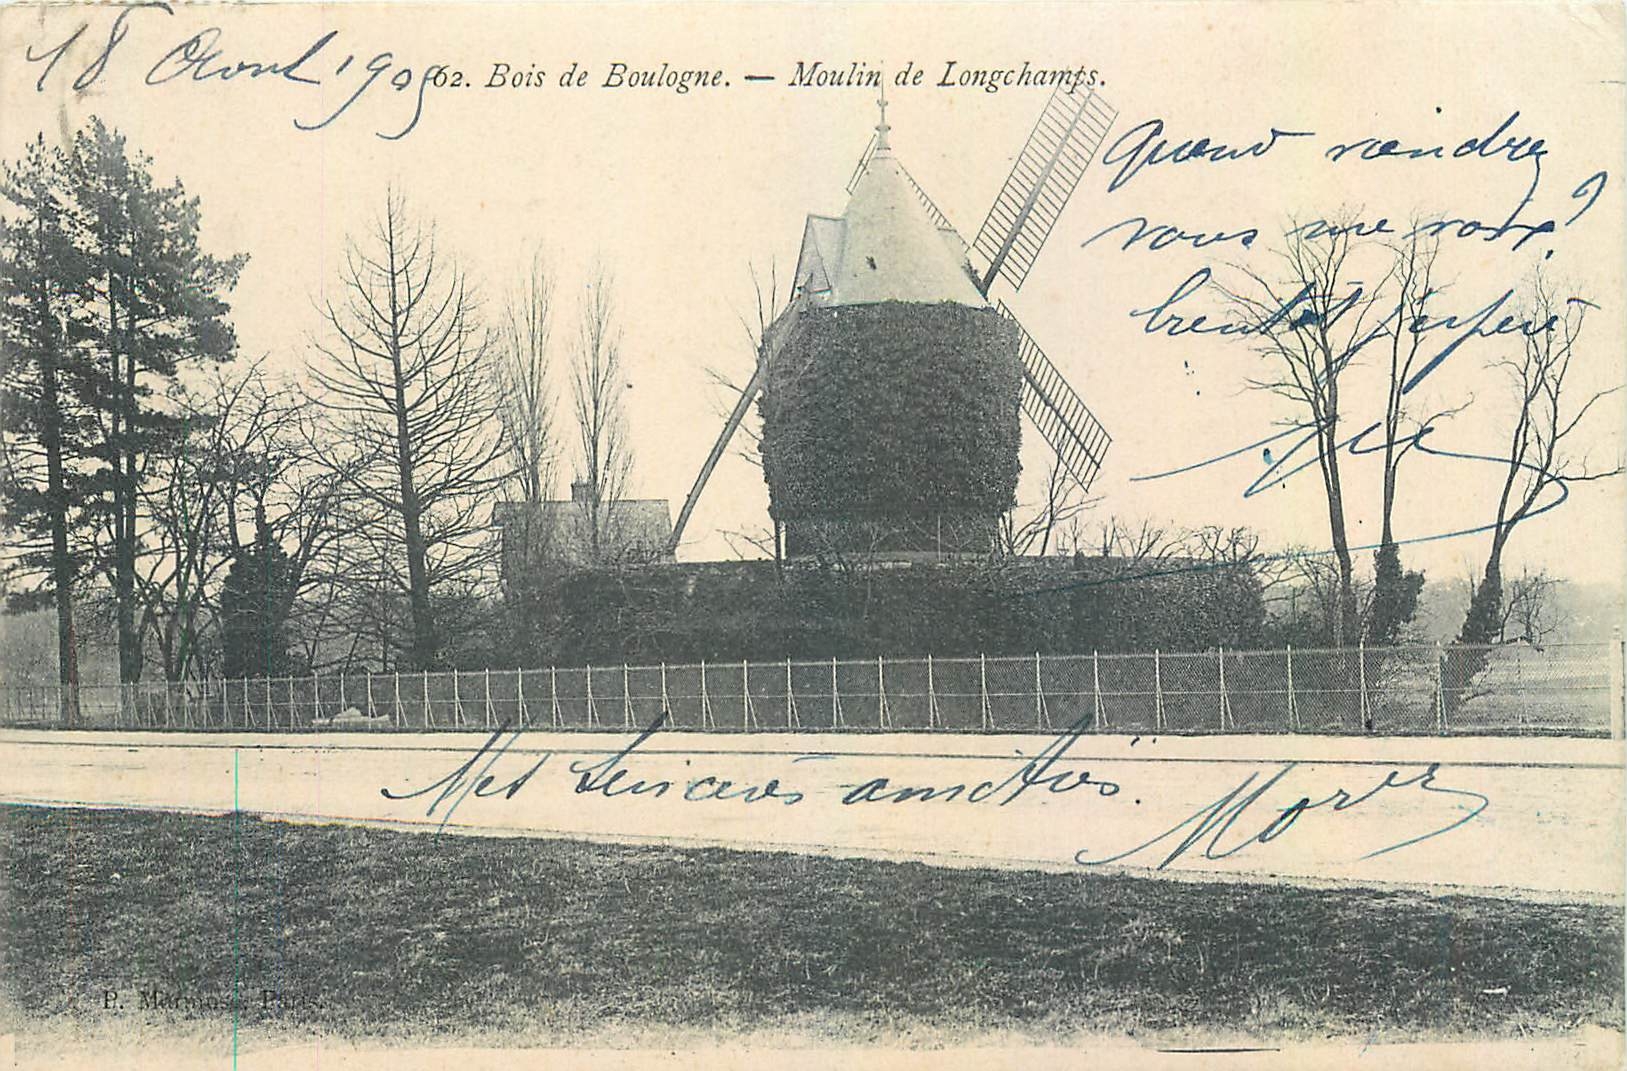 18 Avril 1905
62. Bois de Boulogne. — Moulin de Longchamps.
Quand viendrez
vous me voir?
bientôt j'espère
Mes sincères amitiés.
P. Marmuse. Paris.